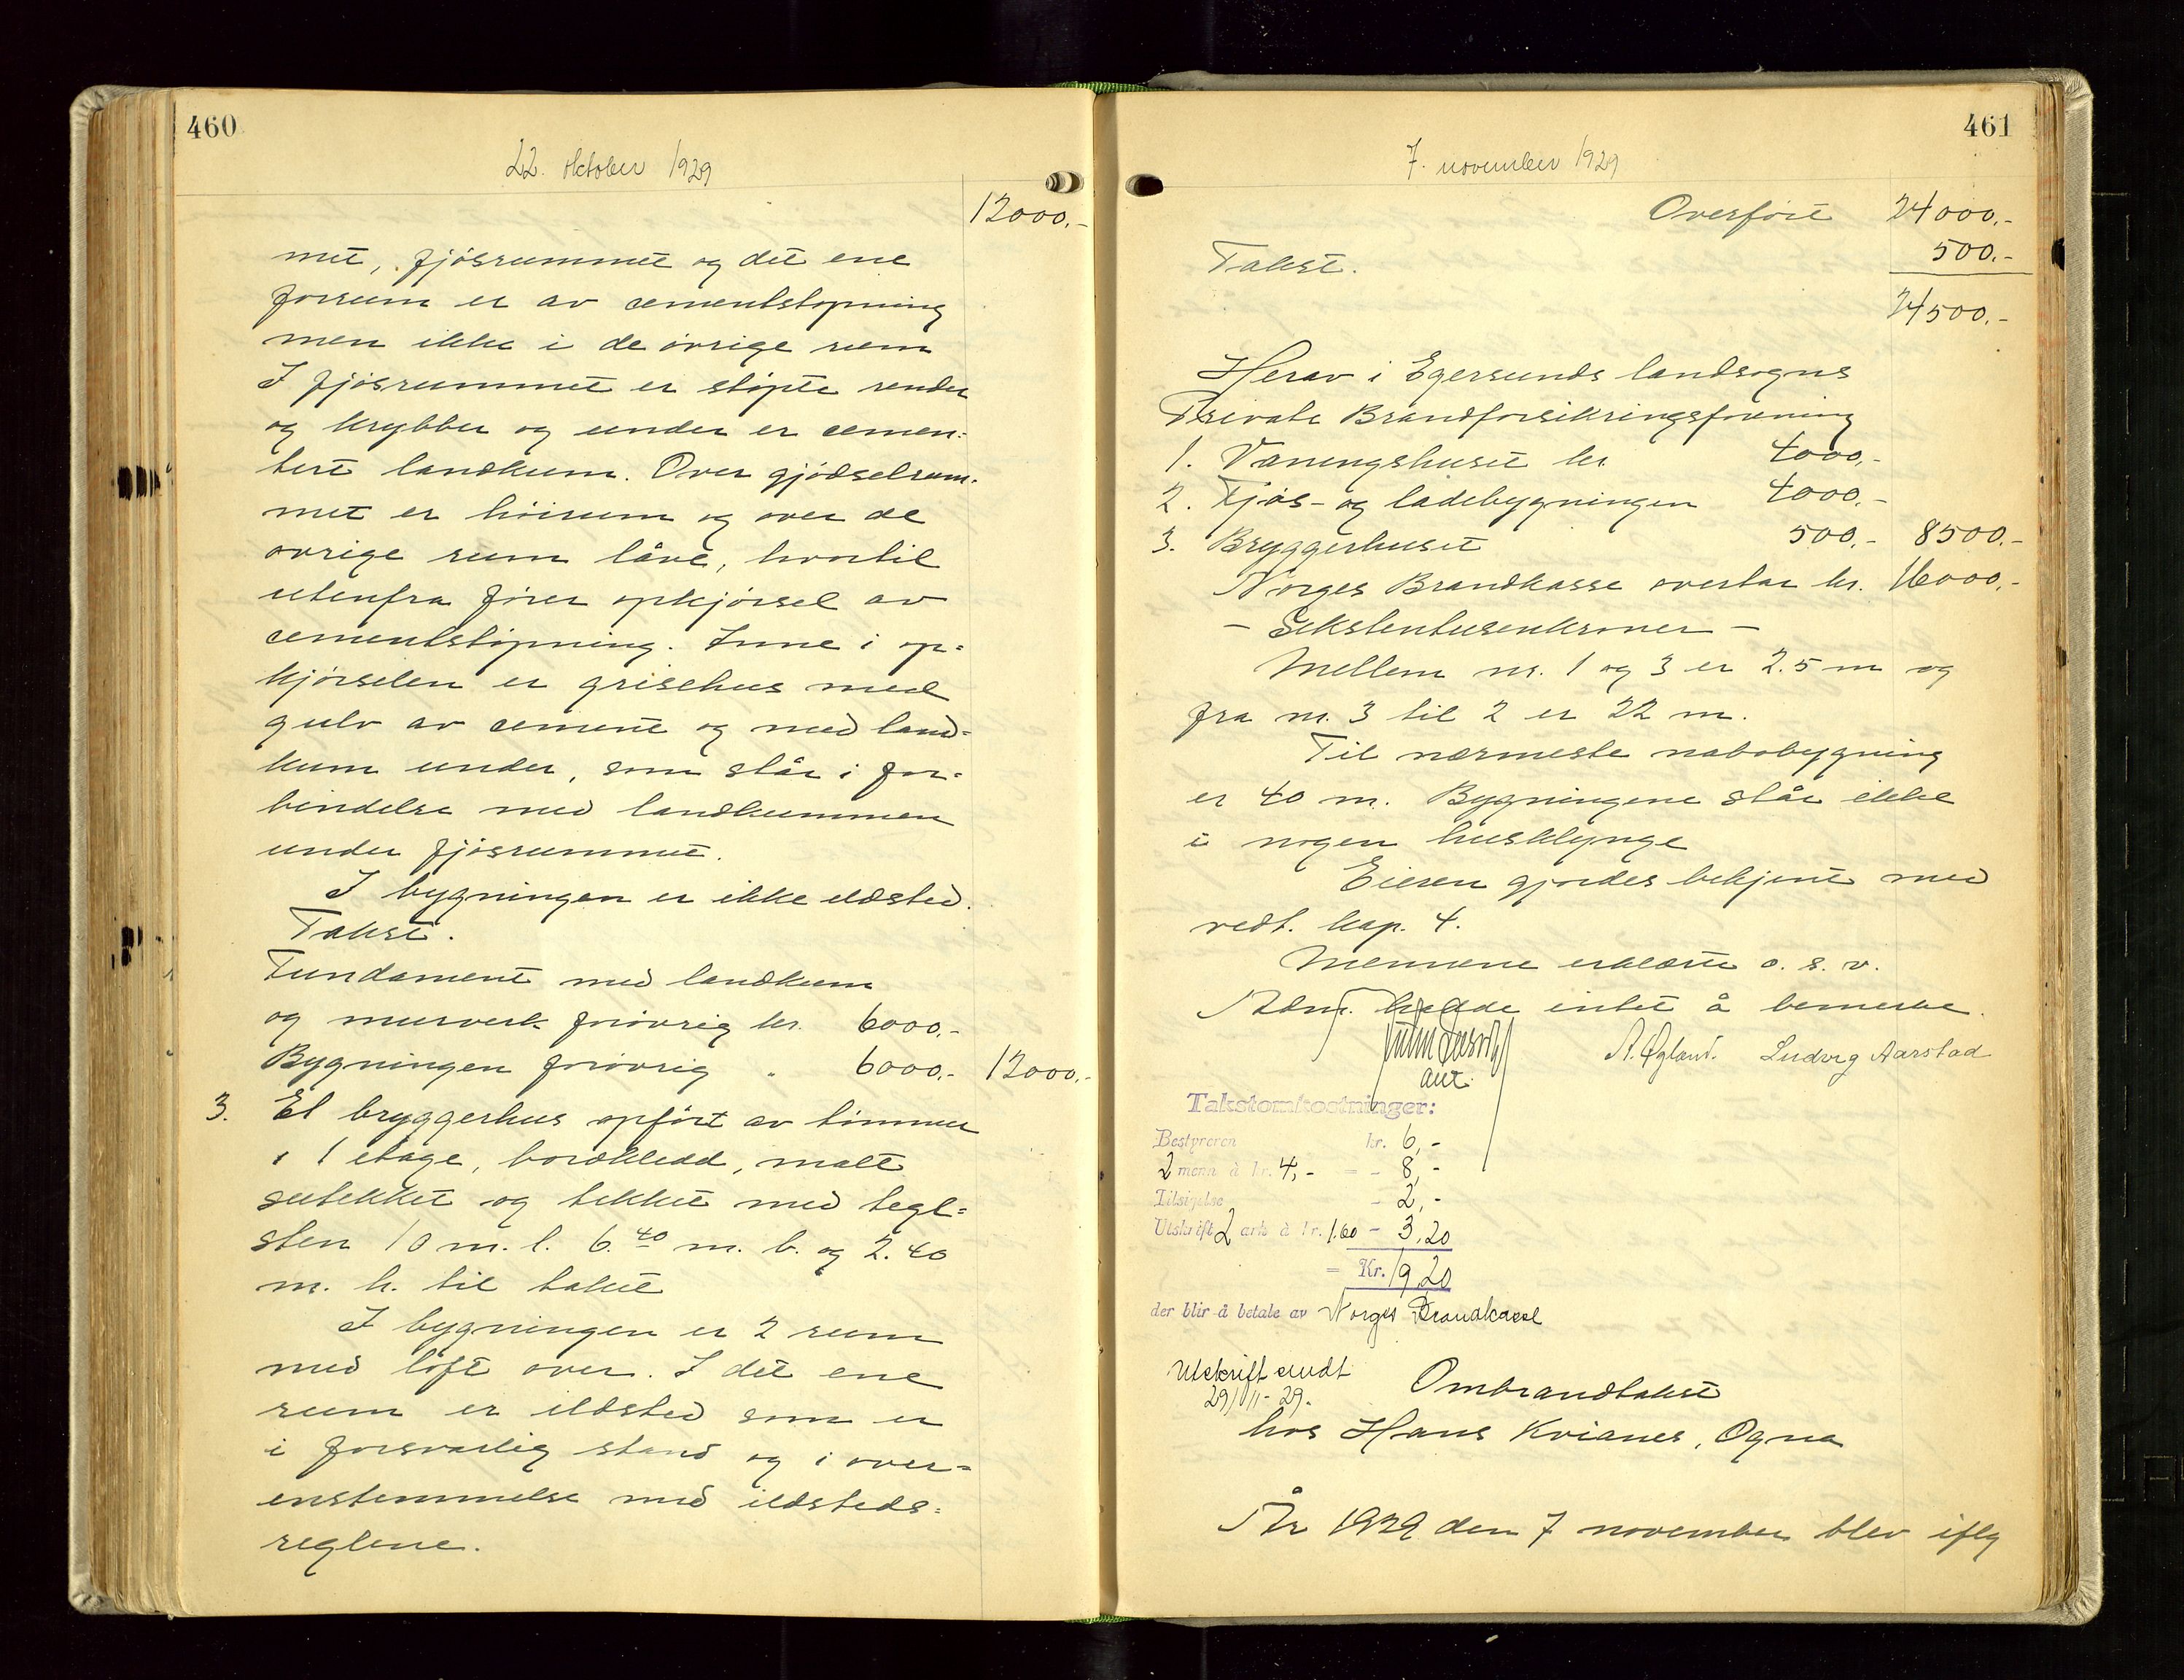 460
22. oktober 1929
12000,-
met, fjösrummet og det ene
forrum er av cementstöpning
men ikke i de övrige rum
I fjösrummet er stöpte render
og krybber og under er cemen-
tert landkum. Over gjödselrum-
met er höirum og over de
övrige rum låve, hvortil
utenfra förer opkjörsel av
cementstöpning. Inne i op-
kjörselen er grisehus med
gulv av cement og med land-
kum under, som står i for-
bindelse med landkummen
under fjösrummet.
I bygningen er ikke ildsted.
Takst.
Fundament med landkum
og murverk forövrig kr. 6000,-
Bygningen forövrig " 6000,- 12000,-
3. Et bryggerhus opfört av tömmer
i 1 etage, bordkledd, malt
sutekket og tekket med tegl-
sten 10 m. l. 6.40 m. b. og 2.40
m. h. til taket
I bygningen er 2 rum
med loft over. I det ene
rum er ildsted som er
i forsvarlig stand og i over-
enstemmelse med ildsteds-
reglene.
461
7. november 1929
Overfört 24000,-
Takst. 500,-
24500,-
Herav i Egersunds landsogns
Private Brandforsikringsforening
1. Vaningshuset kr. 4000,-
2. Fjös- og ladebygningen 4000,-
3. Bryggerhuset 500,- 8500,-
Norges Brandkasse overtar kr. 16000,-
- Sekstentusenkroner -
Mellem nr. 1 og 3 er 2.5 m og
fra nr. 3 til 2 er 22 m.
Til nærmeste nabobygning
er 40 m. Bygningene står ikke
i nogen husklynge
Eieren gjordes bekjent med
vedt. kap. 4.
Mennene erklærte o. s. v.
hadde intet å bemerke.
A. Ogland. Ludvig Aarstad
Takstomkostninger:
Bestyreren kr. 6,-
2 menn à kr. 4,- = - 8,-
Tilsigelse - 2,-
Utskrift 2 ark à kr. 1.60 - 3,20
= Kr. 19,20
der blir å betale av Norges Brandkasse
Utskrift sendt
29/11-29.
Ombrandtakst
hos Hans Kvianes, Ogna
År 1929 den 7 november blev iflg